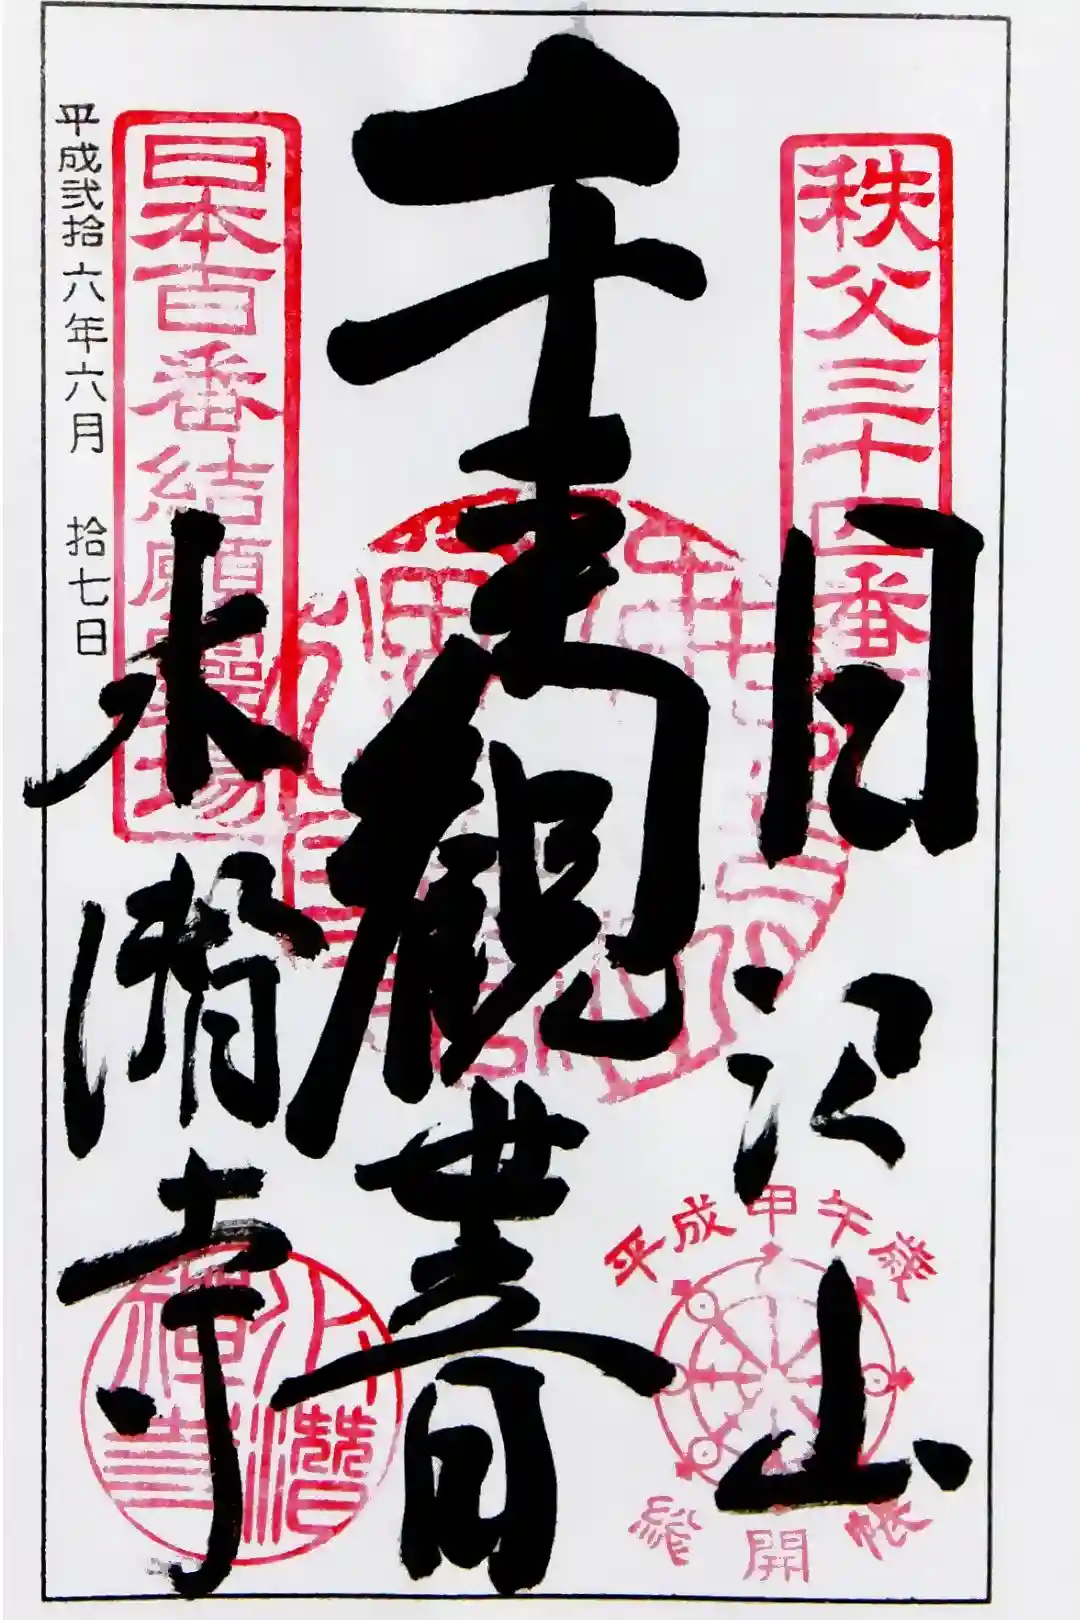 秩父三十四番
日沢山
平成甲午歳
総開帳
千手観世音
日本百番結願靈場
水潜寺
水潛禪寺
平成弐拾六年六月 拾七日